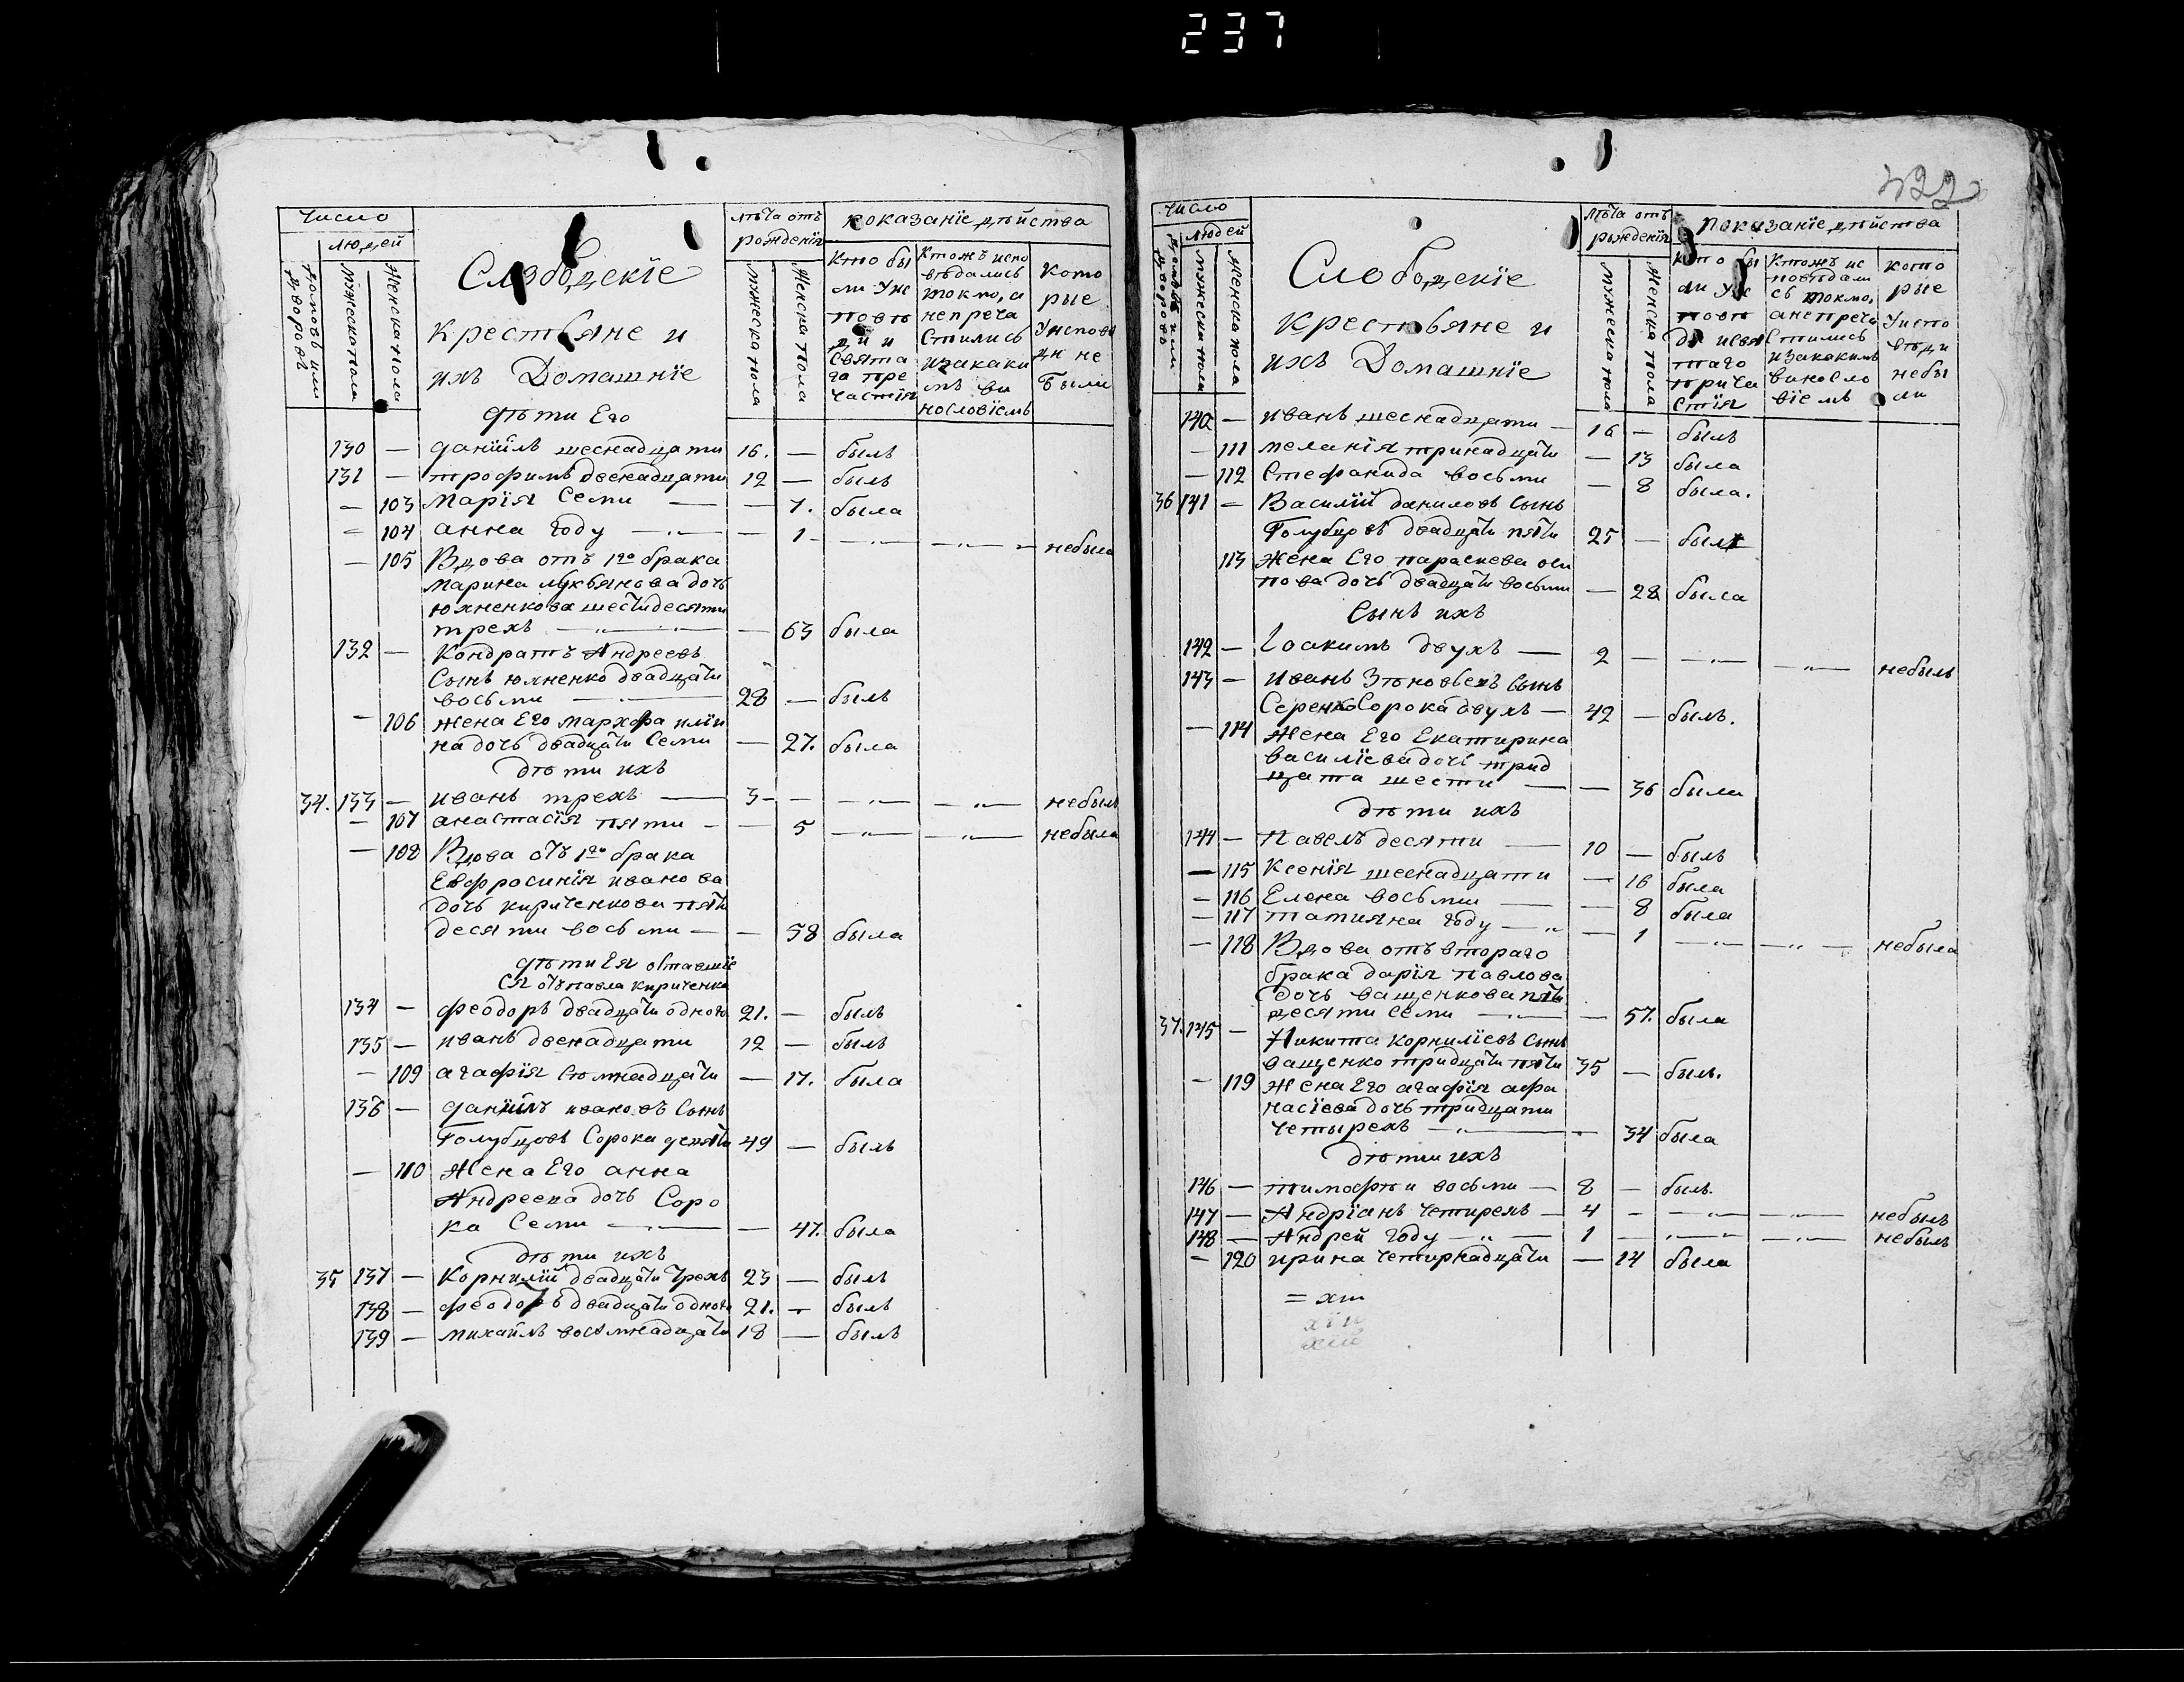 237
422
Число
людей
домовъ или дворовъ
мужеска пола
женска пола
Слободскіе
крестьяне и
ихъ Домашніе
лѣта отъ
рожденія
мужеска пола
женска пола
показаніе дѣйства
кто бы
ли у ис
повѣ
ди и
свята
го при
частія
Ктожъ испо
вѣдались
токмо, а
не прича
стились
и за каки
мъ ви
нословіемъ
Кото
рые
у испове
ди не
были
дѣти Его
130 — даніилъ шеснадцати 16. — былъ
131 — трофимъ двенадцати 12 — былъ
— 103 Марія Семи — — 7. была
— 104 анна году — „ — — 1 — „ — — „ — небыла
— 105 Вдова отъ 1го брака
марина лукьянова дочь
юхненкова шестидесяти
трехъ — „ — — 63 была
132 — Кондратъ Андреевъ
Сынъ юхненко двадцати
восьми — 28 — былъ
— 106 жена Его марфа иліи
на дочь двадцати Семи — 27. была
дѣти ихъ
34. 133 — иванъ трехъ — 3 — — „ — — „ — небылъ
— 107 анастасія пяти — — 5 — „ — — „ — небыла
— 108 Вдова отъ 1го брака
Евфросинія иванова
дочь кириченкова пяти
десяти восьми — — 58 была
дѣти Ея оставшіе
ся отъ павла кириченка
134 — феодоръ двадцати одного 21. — былъ
135 — иванъ двенадцати 12 — былъ
— 109 агафія Семнадцати — 17. была
136 — даніилъ ивановъ Сынъ
Голубцовъ Сорока девяти 49 — былъ
— 110 Жена Его анна
Андреева дочь Соро
ка Семи — „ — — 47. была
дѣти ихъ
35 137 — Корнилій двадцати трехъ 23 — былъ
138 — феодоръ двадцати одного 21. — былъ
139 — михаилъ восемнадцати 18 — былъ
Число
людей
домовъ или дворовъ
мужеска пола
женска пола
Слободскіе
крестьяне и
ихъ Домашніе
лѣта отъ
рожденія
мужеска пола
женска пола
показаніе дѣйства
кто бы
ли у ис
повѣ
ди и свя
таго
прича
стія
Ктожъ ис
повѣдали
сь токмо,
а не прича
стились
и за какимъ
виносло
віемъ
кото
рые
у испо
вѣди
небы
ли
140 — иванъ шеснадцати — 16 — былъ
— 111 меланія тринадцати — 13 была
— 112 Стефанида восьми — 8 была.
36 141 — Василій даниловъ Сынъ
Голубцовъ двадцати пяти 25 — былъ
113 жена Его параскева оси
пова дочь двадцати восьми — 28 была
Сынъ ихъ
142 — Іоакимъ двухъ — 2 — — „ — — „ — небылъ
143 — иванъ Зѣновьевъ Сынъ
Серенко Сорока двухъ — 42 — былъ.
— 114 жена Его Екатирина
василіева дочь трид
цата шести — — 36 была
дѣти ихъ
144 — Павелъ десяти — 10 — былъ
— 115 Ксенія шеснадцати — 16 была
— 116 Елена восьми — — 8 была
— 117 татияна году — „ — 1 — „ — — „ — небыла
— 118 Вдова отъ втораго
брака дарія павлова
дочь ващенкова пяти
десяти Семи — „ — — 57. была
37. 145 — Никита Корниліевъ Сынъ
ващенко тридцати пяти 35 — былъ.
— 119 Жена Его агафія афа
насіева дочь тридцати
четырехъ — „ — — 34 была
дѣти ихъ
146 — тимофѣи восьми — 8 — былъ.
147 — Андріанъ Четирехъ — 4 — — „ — — „ — небылъ
148 — Андрей году — „ — 1 — „ — — „ — небылъ
— 120 ирина Четирнадцати — 14 была